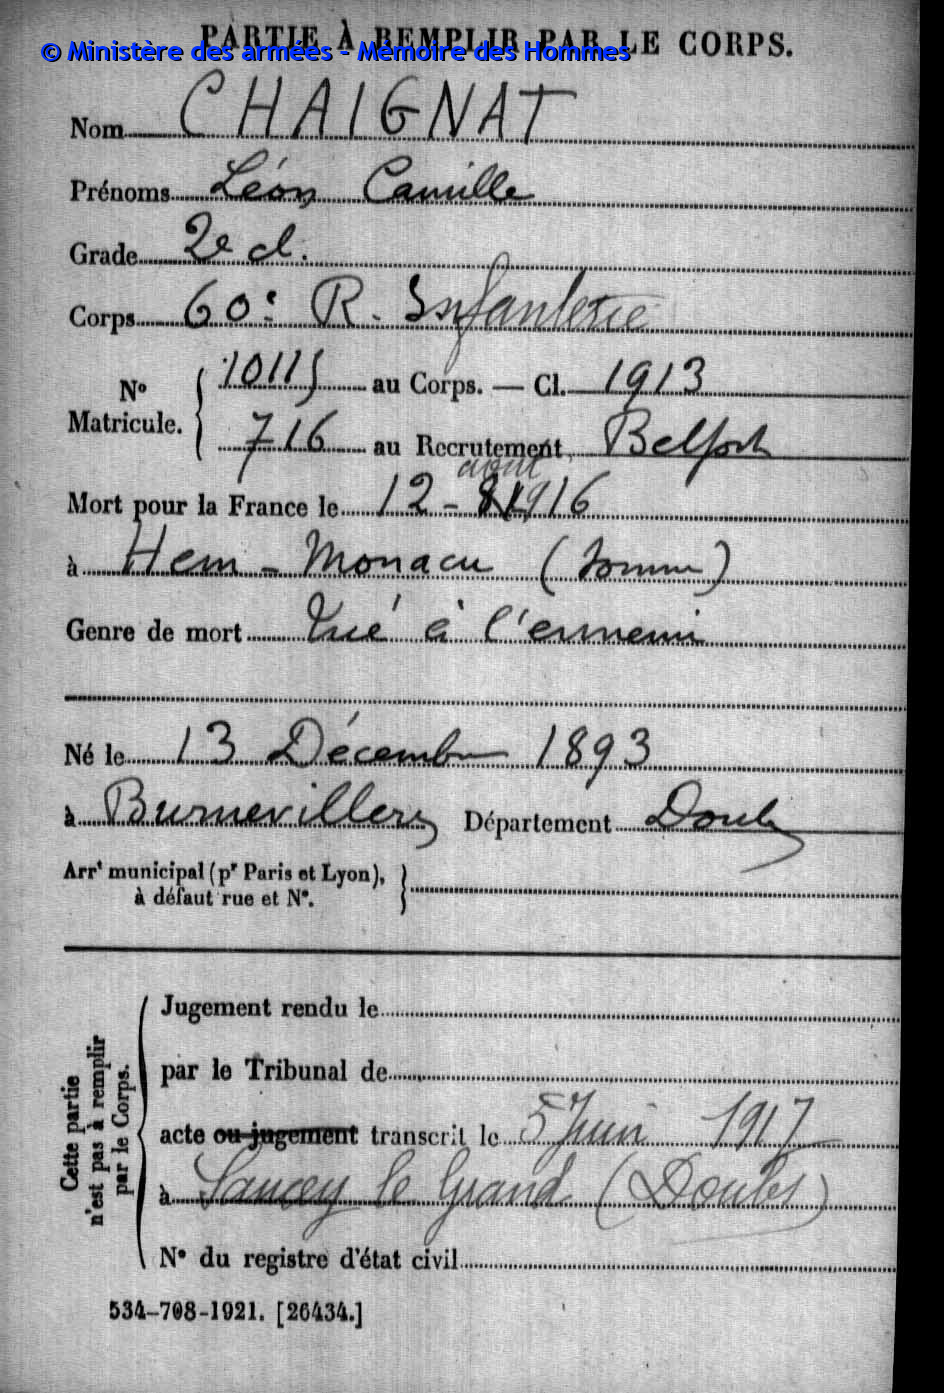 PARTIE À REMPLIR PAR LE CORPS.
© Ministère des armées - Mémoire des Hommes
Nom CHAIGNAT
Prénoms Léon Camille
Grade 2e cl.
Corps 60e R. Infanterie
No Matricule. 10115 au Corps. — Cl. 1913
716 au Recrutement Belfort
août
Mort pour la France le 12 - 8 1916
à Hem - Monacu (Somme)
Genre de mort Tué à l'ennemi
Né le 13 Décembre 1893
à Burnevillers Département Doubs
Arrt municipal (pr Paris et Lyon),
à défaut rue et No.
Cette partie
n'est pas à remplir
par le Corps.
Jugement rendu le
par le Tribunal de
acte ou jugement transcrit le 5 Juin 1917
à Sancey le Grand (Doubs)
No du registre d'état civil
534-708-1921. [26434.]